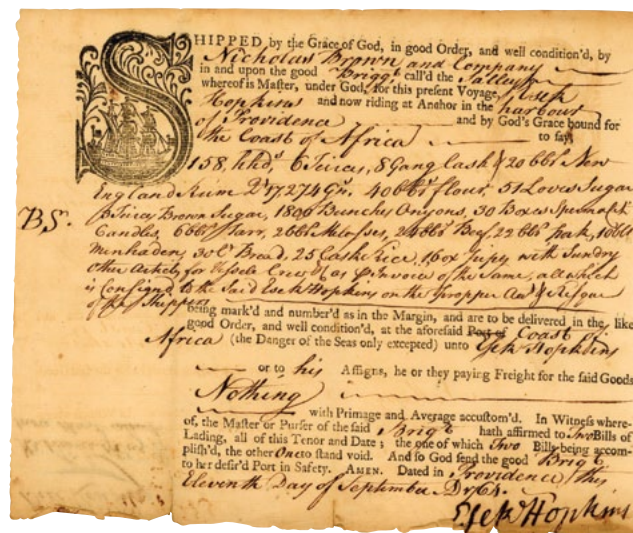 SHIPPED by the Grace of God, in good Order, and well condition'd, by
Nicholas Brown and Company
in and upon the good Briggt call'd the Sally
whereof is Master, under God, for this present Voyage, Esek
Hopkins and now riding at Anchor in the harbour
of Providence and by God's Grace bound for
the Coast of Africa to say
158, hhds, 6 Tierces, 8 Gang Cask & 20 bbls New
England Rum Qt 17,274 Gn. 40 bbls flour, 51 Loves Sugar
Tierces Brown Sugar, 1800 Bunches Onyons, 30 Boxes Spermacti
Candles, 6 bbls Tarr, 2 bbls Molasses, 24 bbls Beef, 22 bbls Pork, 10 bbls
Menhaden, 30 C Bread, 25 Casks Rice, with Sundry
other for Vessels Crew &c as Invoice of the Same, all which
is Consign'd to the Said Esek Hopkins on the Propper & Risque
of Shippers
BS.
being mark'd and number'd as in the Margin, and are to be delivered in the like
good Order, and well condition'd, at the aforesaid Port of Coast of
Africa (the Danger of the Seas only excepted) unto Esek Hopkins
or to his Assigns, he or they paying Freight for the said Goods
Nothing
with Primage and Average accustom'd. In Witness where-
of, the Master or Purser of the said Briggt hath affirmed to Two Bills of
Lading, all of this Tenor and Date; the one of which Two Bills being accom-
plish'd, the other One to stand void. And so God send the good Briggt
to her desir'd Port in Safety. AMEN. Dated in Providence this
Eleventh Day of September 1764.
Esek Hopkins